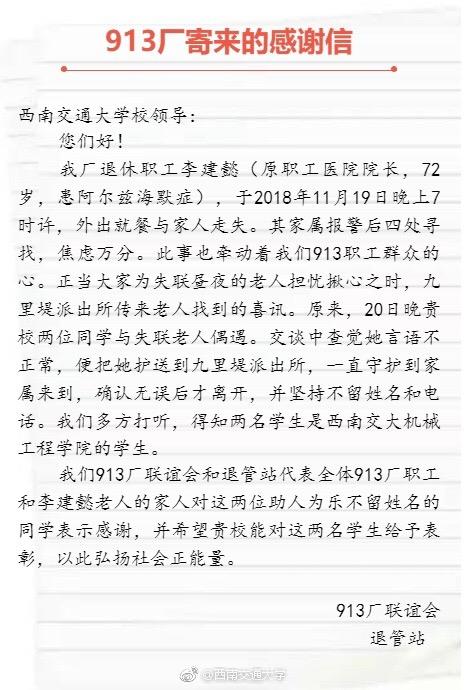 913厂寄来的感谢信
西南交通大学校领导：
您们好！
我厂退休职工李建懿（原职工医院院长，72
岁，患阿尔兹海默症），于2018年11月19日晚上7
时许，外出就餐与家人走失。其家属报警后四处寻
找，焦虑万分。此事也牵动着我们913职工群众的
心。正当大家为失联昼夜的老人担忧揪心之时，九
里堤派出所传来老人找到的喜讯。原来，20日晚贵
校两位同学与失联老人偶遇。交谈中查觉她言语不
正常，便把她护送到九里堤派出所，一直守护到家
属来到，确认无误后才离开，并坚持不留姓名和电
话。我们多方打听，得知两名学生是西南交大机械
工程学院的学生。
我们913厂联谊会和退管站代表全体913厂职工
和李建懿老人的家人对这两位助人为乐不留姓名的
同学表示感谢，并希望贵校能对这两名学生给予表
彰，以此弘扬社会正能量。
913厂联谊会
退管站
@西南交通大学